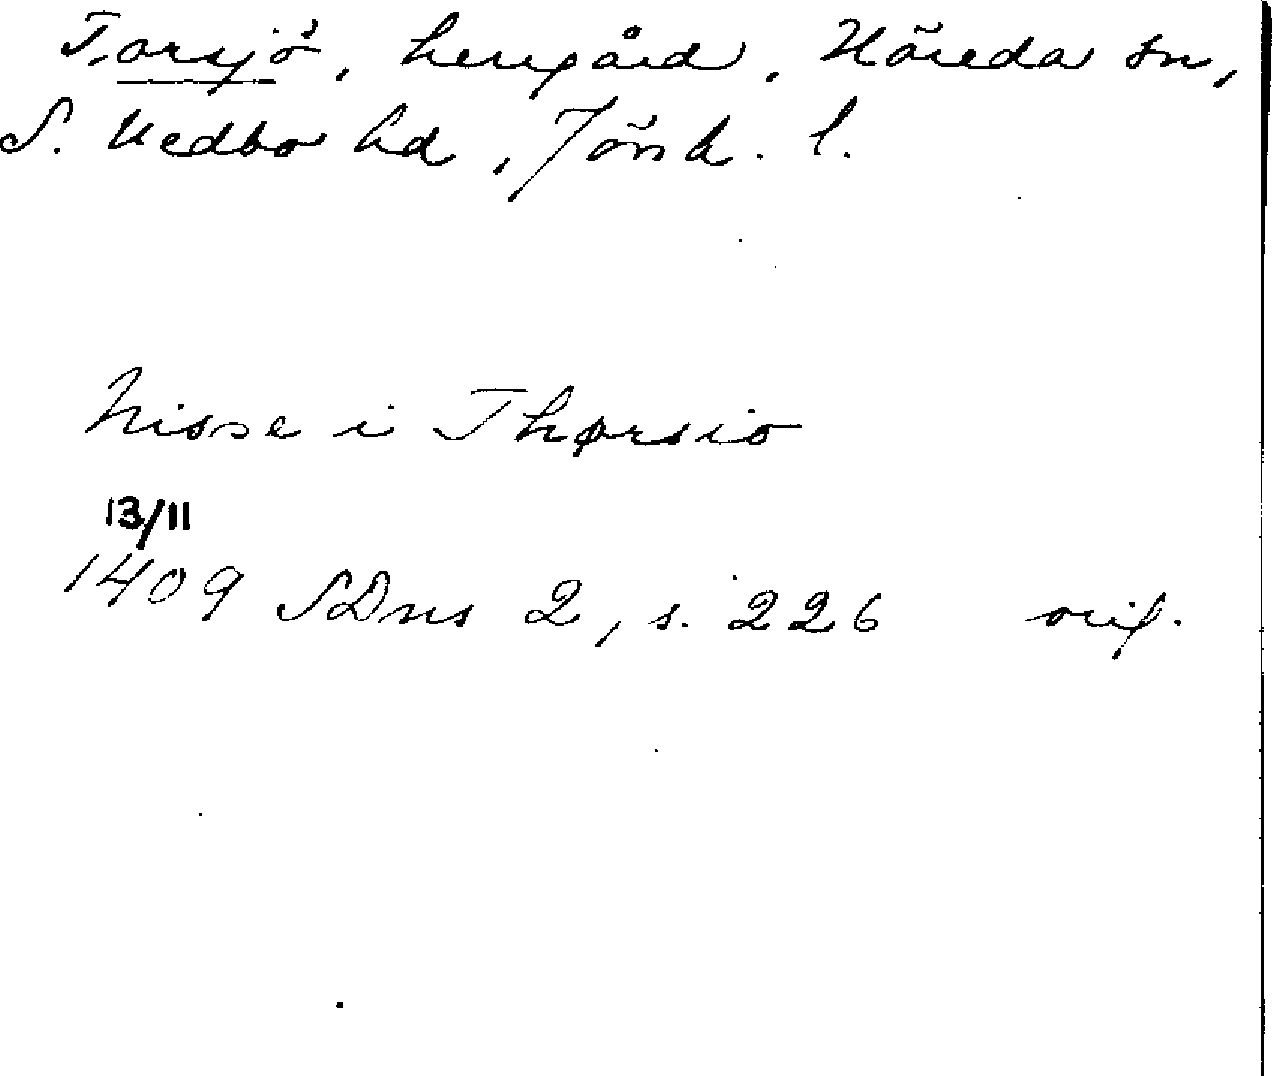 Torsjö, herrgård, Näreda sn,
S. Vedbo hd, Jönk. l.
Nisse i Thørsio
13/11
1409 SDns 2, s. 226 orig.